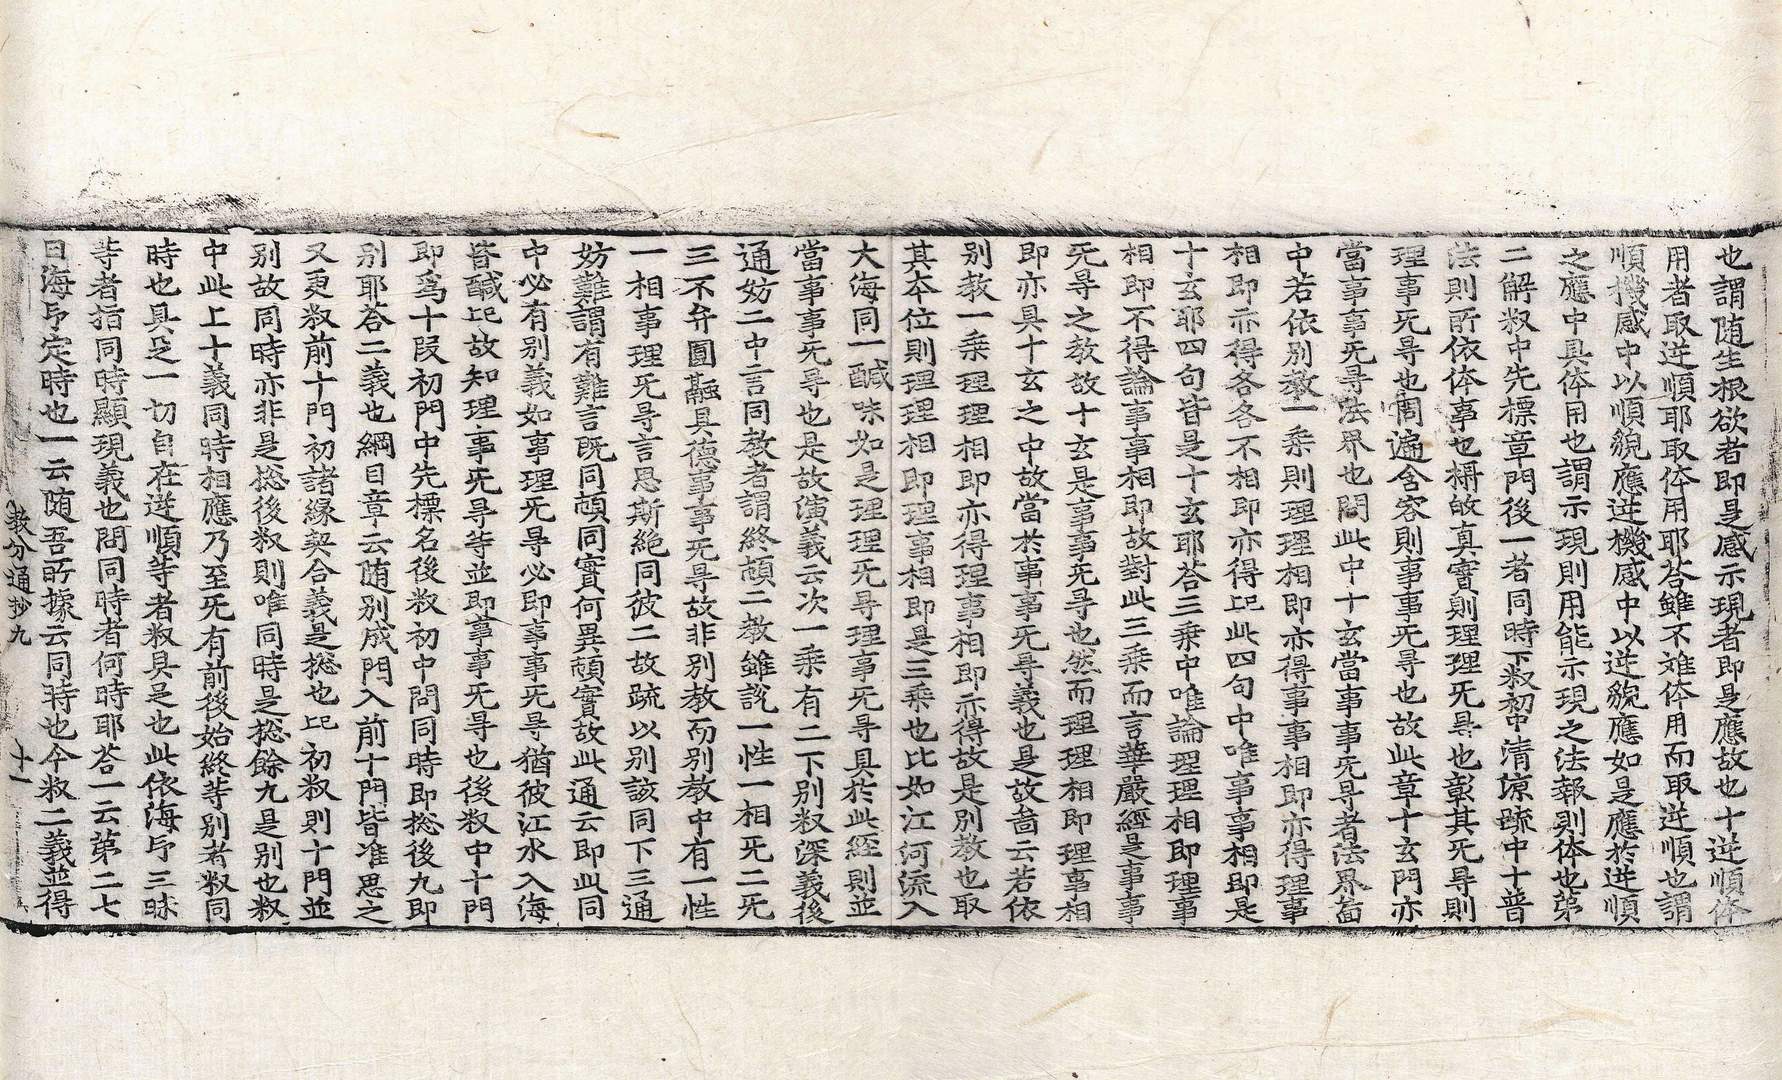 也謂随生根欲者即是感示現者即是應故也十逆順体
用者取逆順耶取体用耶荅雖不难体用而取逆順也謂
順機感中以順貌應逆機感中以逆貌應如是應於逆順
之應中具体用也謂示現則用能示現之法報則体也第
二解㪽中先標章門後一者同時下㪽初中清凉䟽中十普
法則所依体事也㭼故真實則理理旡㝵也彰其旡㝵則
理事旡㝵也周遍含容則事事旡㝵也故此章十玄門亦
當事事旡㝵法界也問此中十玄當事事旡㝵者法界啚
中若依別教一乗則理理相即亦得事事相即亦得理事
相即亦得各各不相即亦得㔫此四句中唯事事相即是
十玄耶四句皆是十玄耶荅三乗中唯論理理相即理事
相即不得論事事相即故對此三乗而言華嚴經是事事
旡㝵之教故十玄是事事旡㝵也然而理理相即理事相
即亦具十玄之中故當於事事旡㝵義也是故啚云若依
别教一乗理理相即亦得理事相即亦得故是別教也取
其本位則理理相即理事相即是三乗也比如江河流入
大海同一醎味如是理理旡㝵理事旡㝵具於此經則並
當事事旡㝵也是故演義云次一乗有二下別㪽深義後
通妨二中言同教者謂終頓二教雖說一性一相旡二旡
三不弁圓融具德事事旡㝵故非別教而別教中有一性
一相事理旡㝵言思斯絶同彼二故䟽以別該同下三通
妨難謂有難言既同頓同實何異頓實故此通云即此同
中必有別義如事理旡㝵必即事事旡㝵猶彼江水入海
皆醎㔫故知理事旡㝵等並即事事旡㝵也後㪽中十門
即爲十叚初門中先標名後㪽初中問同時即揔後九即
别耶荅二義也綱目章云随别成門入前十門皆准思之
又更㪽前十門初諸緣契合義是揔也㔫初㪽則十門並
別故同時亦非是揔後㪽則唯同時是揔餘九是别也㪽
中此上十義同時相應乃至旡有前後始終等別者㪽同
時也具足一切自在逆順等者㪽具足也此依海印三昧
等者指同時顯現義也問同時者何時耶荅一云第二七
日海印定時也一云随吾所據云同時也今㪽二義並得
教分通抄九　十一